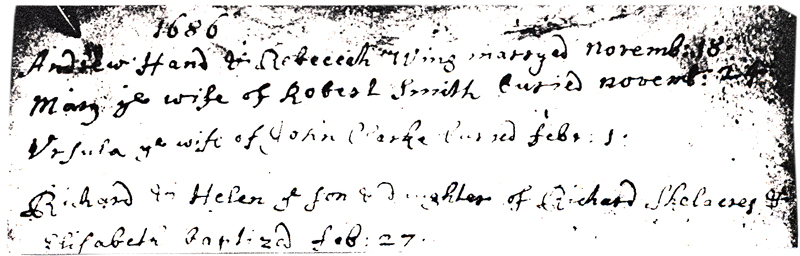 1686
Andrew Hand & Rebeccah Wing marryed novemb: 18
Mary ye wife of Robert Smith buried novemb: 24
Ursula ye wife of John Clarke buried febr: 1.
Richard & Helen ye son & daughter of Richard Skelacres &
Elisabeth baptized feb: 27.